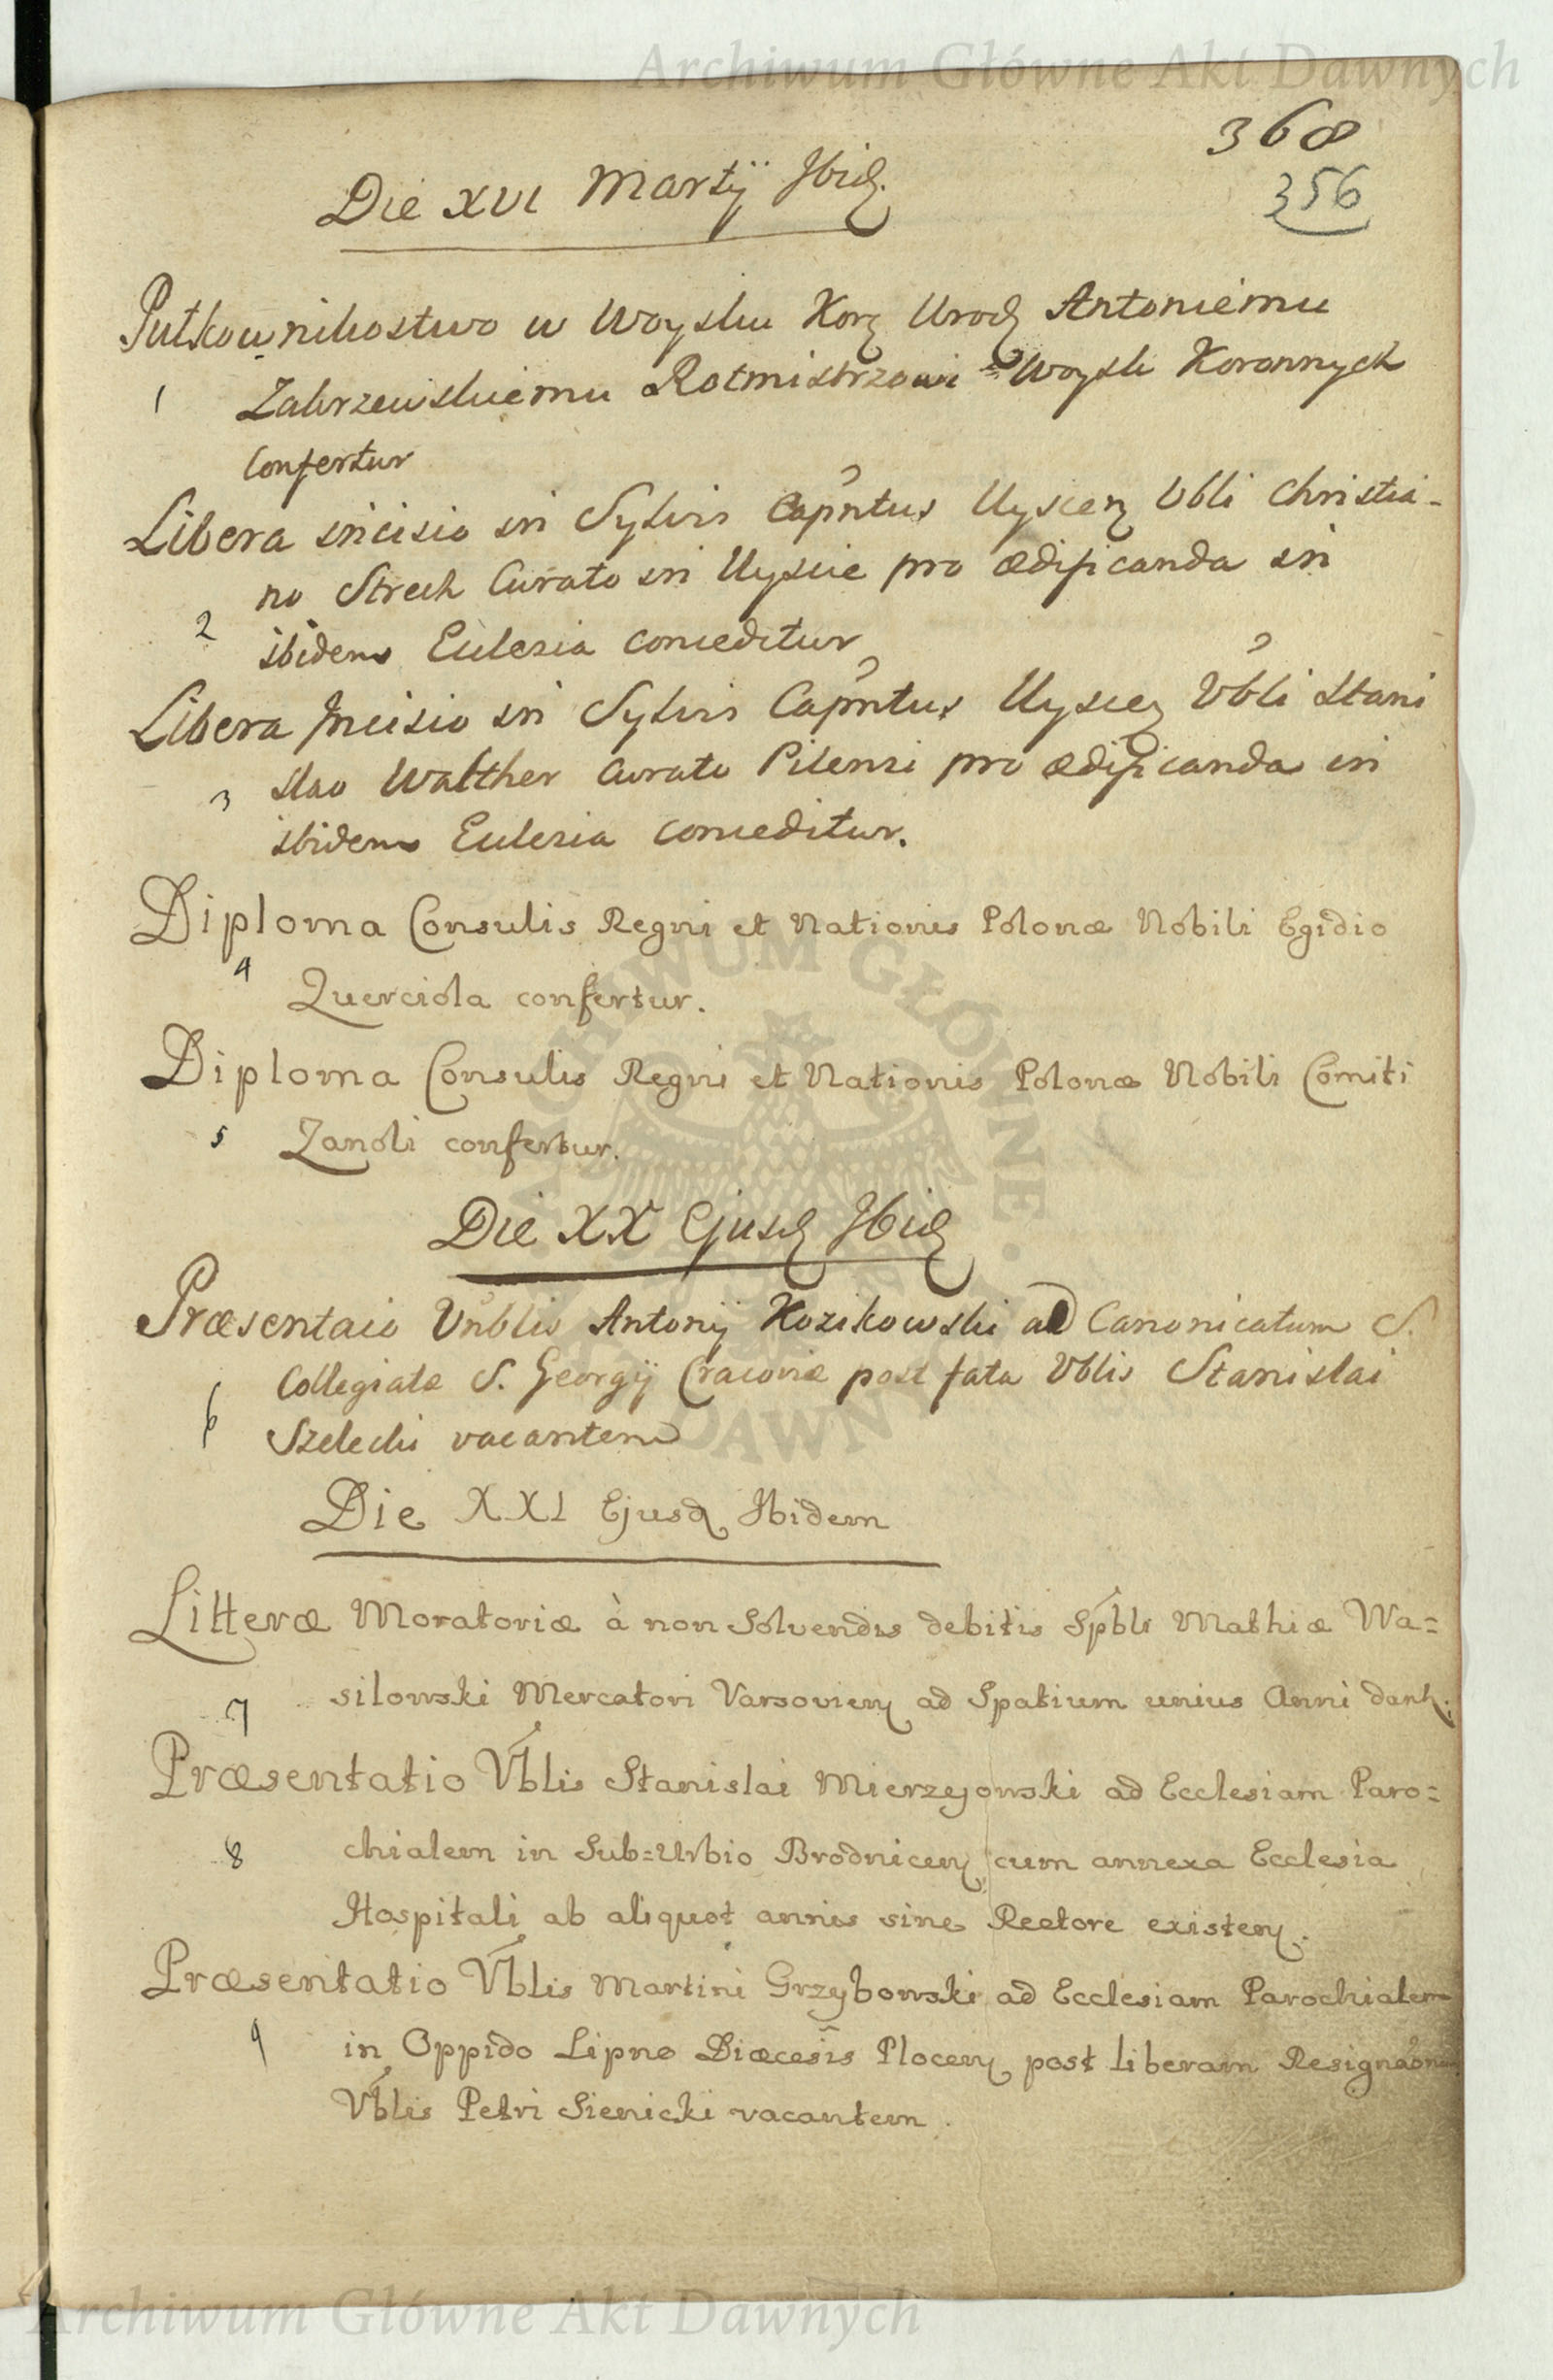 Archiwum Główne Akt Dawnych
368
356
Die XVI Martij Ibid.
Pułkownikostwo w Woysku Kor. Urod. Antoniemu
1 Zakrzewskiemu Rotmistrzowi Woysk Koronnych
Confertur
Libera incisio in Sylvis Capntus Uyscen Vbli Christia-
no Strech Curato in Uyscie pro ædificanda in
2 ibidem Ecclesia conceditur
Libera Incisio in Sylvis Capntus Uyscen Vbli Stani
3 slao Walther Curato Pilensi pro ædificanda in
ibidem Ecclesia conceditur.
Diploma Consulis Regni et Nationis Polonæ Nobili Egidio
4 Querciola confertur.
Diploma Consulis Regni et Nationis Polonæ Nobili Comiti
5 Zanoli confertur.
Die XX Ejusd Ibid
Præsentaio Vnblis Antonij Kozikowski ad Canonicatum S.
Collegiatæ S. Georgij Cracoviæ post fata Vblis Stanislai
6 Szelecki vacantem
Die XXI Ejusd Ibidem
Litteræ Moratoriæ à non Solvendis debitis Spbli Mathiæ Wa=
7 silowski Mercatori Varsovien ad Spatium unius Anni dant.
Præsentatio Vblis Stanislai Mierzejowski ad Ecclesiam Paro=
8 chialem in Sub=Urbio Brodnicen cum annexa Ecclesia
Hospitali ab aliquot annis sine Rectore existen.
Præsentatio Vblis Martini Grzybowski ad Ecclesiam Parochialem
9 in Oppido Lipno Diæcesis Plocen post liberam Resignaonem
Vblis Petri Sienicki vacantem.
ARCHIWUM GŁÓWNE AKT DAWNYCH
Archiwum Główne Akt Dawnych